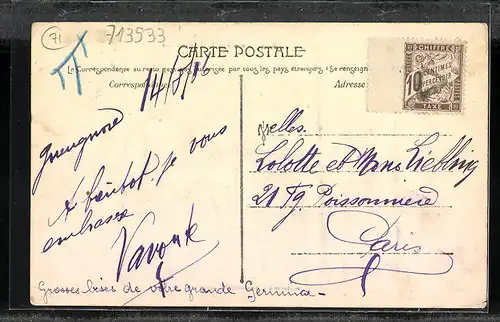 71
713533
CARTE POSTALE
La Correspondance au recto n'est pas acceptée par tous les pays étrangers (Se renseign
Correspondance
Adresse
14/8/06
CHIFFRE
10 CENTIMES
A PERCEVOIR
TAXE
Gueugnon
A bientôt. Je vous
embrasse
elles.
Lolotte et Liebling
21 Fg. Poissonnière
Paris
Grosses bises de votre grande Gemma